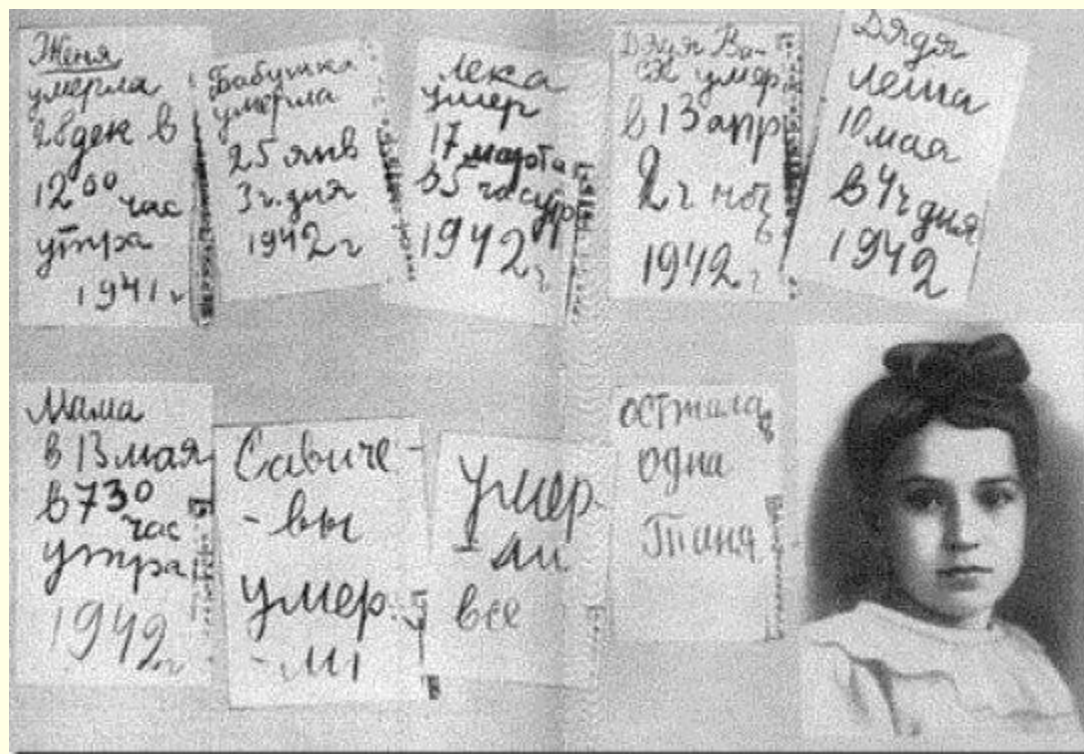 Женя
умерла
28 дек в
12 00 час
утра
1941 г
Бабушка
умерла
25 янв
3 ч. дня
1942 г
Лека
умер
17 марта
в 5 час утр
1942 г
Дядя Ва-
ся умер
в 13 апр
2 ч ночь
1942 г
Дядя
Леша
10 мая
в 4 ч дня
1942
Мама
в 13 мая
в 7 30
час
утра
1942 г
Савиче-
- вы
умер-
- ли
умер-
- ли
все
осталась
одна
Таня